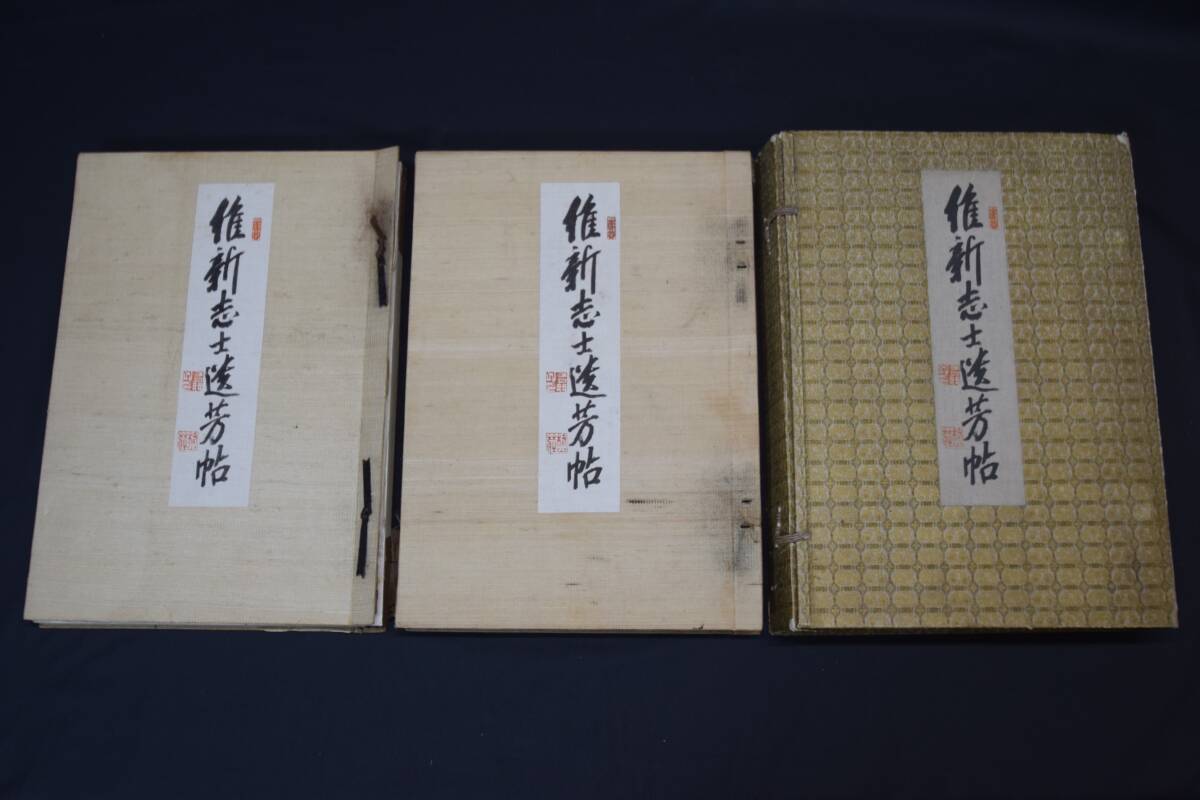 維新志士遺芳帖
維新志士遺芳帖
維新志士遺芳帖